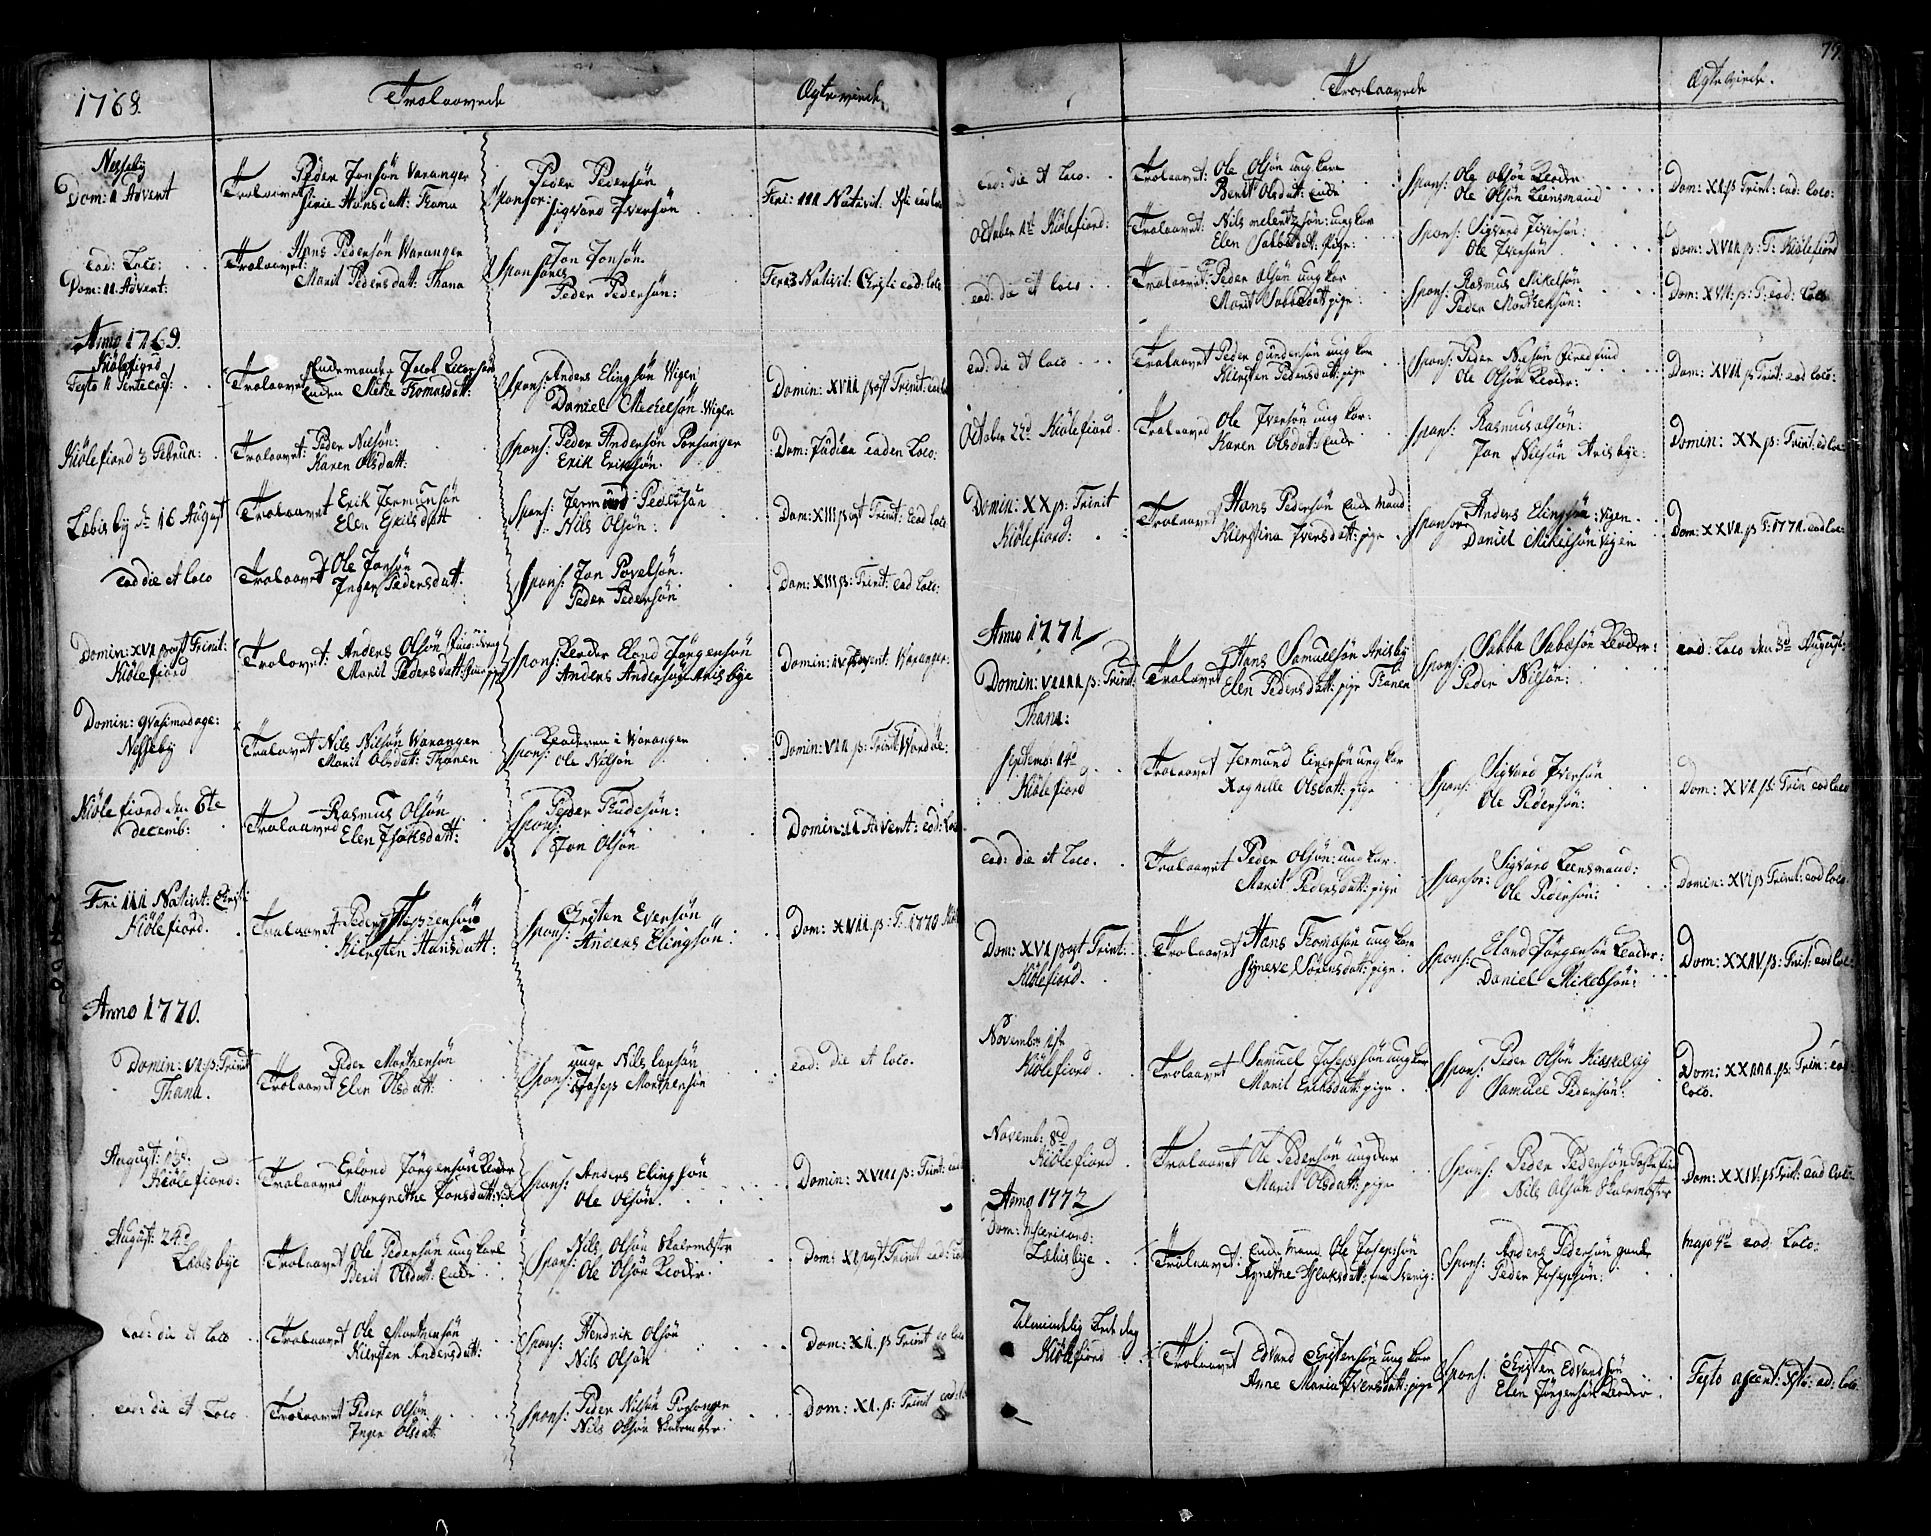 1768.
Trolaavede
Ægteviede
Nesseby
Dom: 11 Advent
Trolaavet Peder Jonsøn Varanger
Sirie Hansdatt: Thana
Sponsor: Peder Pedersøn
Sigvard Iversøn
Feri: 111 Nativit. Xsti ead loco
ead: Loco:
Dom: 11 Advent:
Trolaavet: Hans Pedersøn Waranger
Marit Pedersdatt: Thana
Sponsores Jon Jonsøn.
Peder Pedersøn:
Feri 3 Nativit: Christi ead: loco
Anno 1769.
Kiölefiord
Festo 11 Pentecost:
Trolaavet Enkemand Jacob
Enken Thomasdatt:
Spons: Anders Elingsøn Wigen
Daniel Mickelsøn Wigen
Domin: XVII post Trinit: ead loco
Kiölefiord 3 Februar:
Trolaavet: Peder Nilsøn:
Karen Olsdatt:
Spons: Peder Andersøn Porsanger
Erik Eriksøn.
Dom: Judica eaden Loco:
Læbisbÿ d 16 August
Trolaavet Erik Jermunsøn
Elen Eriksdatt
Spons: Jermund Pedersøn
Nils Olsøn:
Dom: XIII post Trinit: Ead loco
ead die et loco
Trolaavet Ole Jonsøn
Inger Pedersdatt.
Spons: Jon Povelsøn.
Peder Pedersøn
Dom: XIII p: Trinit: ead Loco:
Domin: XVI post Trinit:
Kiölefiord
Trolovet: Anders Olsøn
Marit Pedersdatt:
Spons: Klocker Elend Jørgensøn
Anders Andersøn Arisbye
Domin: IV Advent: Waranger:
Domin: qvasimodoge:
Nesseby
Trolovet Nils Nilsøn Waranger
Marit Olsdatt: Thanen
Spons: Klockeren i Waranger
Ole Nilsøn
Domin: VII p: Trinit Wardöe:
Kiölefiord den 6te
Decemb:
Trolaaved Rasmus Olsøn.
Elen Isaksdatt:
Spons: Peder Thudesøn:
Jon Olsøn
Domin: 11 Advent: ead: Loco
Feri 111 Nativit: Christi
Kiölefiord.
Trolaavet: Peder
Kiersten Hansdatt:
Spons: Christen Eversøn
Anders Elingsøn:
Dom: XVII p: T: 1770
Anno 1770.
Domin: VI p: Trinit
Thana.
Trolaavet Peder Morthensøn
Elen Olsdatt:
Spons: unge Nils Larsøn
Joseps Morthensøn
ead: die et loco.
August:
Kiölefiord:
Trolaaved Erlond Jörgensøn Klocker
Margrethe Jonsdatt:
Spons: Anders Elingsøn
Ole Olsøn.
Domin: XVIII p: Trinit: ead
August 24d
Læbisbye
Trolaavet Ole Pedersøn ung karl
Berit Olsdatt: Enke
Spons: Nils Olsøn Skolemester
Ole Olsøn Klocker.
Dom: XI post Trinit ead: Loco
Ead: die et loco
Trolaavet Ole Morthensøn
Kiersten Andersdatt:
Spons: Hendrik Olsøn
Nils Olsøn
Dom: XII. p: Trinit eo loco
ead: die et Loco
Trolaavet Peder Olsøn
Inger Olsdatt:
Spons: Peder Nilsøn Porsanger
Nils Olsøn Skolemester:
Dom: XI. p: Trinit ead: lo
77.
Trolaavede
Ægteviede.
ead: die et Loco.
Trolaavet: Ole Olsøn ung karl
Berit Olsdatt: Enke
Spons: Ole Olsøn Klocker
Ole Olsøn Leensmand
Dom: XI p Trint: ead: Loco:
October 1st Kiölefiord:
Trolaavet: Nils ungkar
Elen Sabbedatt: Pige:
Spons: Sigvard Iversøn:
Ole Iversøn
Dom: XVII p: T: Kiölefiord
ead: die et loco
Trolaavet: Peder Olsøn ung kar
Marit Sabbedatt pige:
Spons: Rasmus Mikelsøn
Peder Morthensøn:
Dom: XVII: p: T: ead: Loco
ead: die et loco
Trolaavet Peder Gundersøn ung kar
Kiersten Pedersdatt: pige
Spons: Peder Nilsøn
Ole Olsøn Klocker:
Dom: XVII p Trint: ead loco:
October 22d Kiölefiord
Trolaaved Ole Iversøn ung kar:
Karen Olsdat: Enke
Spons: Rasmus olsøn:
Jon Nilsøn Arisbye:
Domin: XX p: Trint: ead loc:
Domin: XX p: Trinit
Kiölefiord:
Trolaavet Hans Pedersøn Enke Mand
Kierstina Iversdatt: pige
Sponsor Anders Elingsøn: Vigen
Daniel Mikelsøn Vigen
Dom: XXVI p T: 1771. ead loc:
Anno 1771
Domin: VIIII p: Trinit:
Thana:
Trolaavet Hans Samuelsøn Arisby
Elen Pedersdatt: pige Thanen
Spons: Sabba Sabesøn Klocker:
Peder Nilsøn:
ead: Loco den 3d August:
Septemb: 14d
Kiölefiord
Trolaavet Jermund Eversøn ung kar
Ragnille Olsdatt: pige
Spons: Sigvard Iversøn
Ole Pedersøn:
Dom: XVI p: Trin ead loco
ead: die et loco.
Trolaavet Peder Olsøn: ung kar.
Marit Pedersdatt: pige
Sponsor: Sigvard Leensmand:
Ole Pedersøn:
Domin: XVI p Trinit: ead loco
Dom: XVI post Trint:
Kiölefiord.
Trolaavet Hans Thomasøn ung kar
Synneve Sörensdatt: pige.
Spons: Eland Jørgensøn Klocker:
Daniel Mikelsøn:
Dom: XXIV p: Trit: ead loc:
Novemb: 1st
Kiölefiord
Trolaavet Samuel Josepssøn ung kar
Marit Eriksdatt: pige
Spons: Peder Olsøn
Samuel Pedersøn:
Dom: XXIII. p: Trin: ead
Loco.
Novemb: 8d
Kiölefiord
Trolaavet Ole Pedersøn ung kar
Marit Olsdatt: pige
Spons: Peder Pedersøn
Nils Olsøn Skolemester
Dom: XXIV. p: Trit: ead loc:
Anno 1772
Dom: Misericord:
Læbisbye
Trolaavet: Enke Mand Ole Josepsøn
Agnethe Isaksdatt:
Spons: Anders Pedersøn gamle
Peder Josepsøn:
Majo 4d ead: Loco:
Almindelig Bede dag
Kiölefiord
Trolaavet Edvard Christensøn ung kar
Anne Maria Iversdatt: pige
Spons: Christen Edvardsøn
Elen Jørgensøn Klocker.
Festo ascent: ead: loco